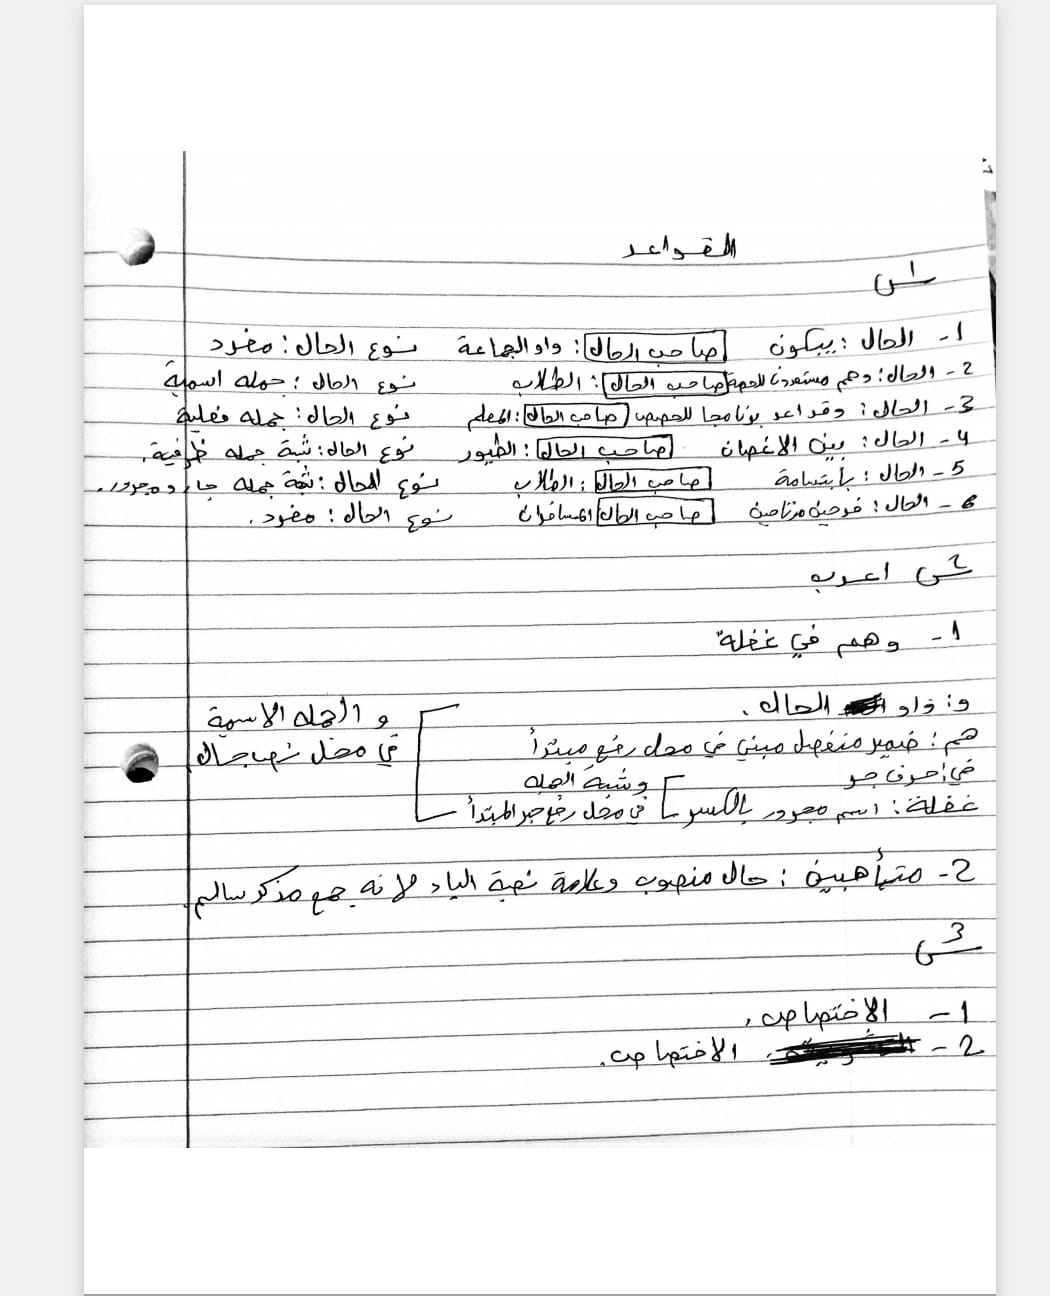 القواعد
س1
1- الحال: يبكون صاحب الحال: واو الجماعة نوع الحال: مفرد
2- الحال: وهم مستعدون للحصة صاحب الحال: الطلاب نوع الحال: جمله اسمية
3- الحال: وقد اعد برنامجا للحصص صاحب الحال: المعلم نوع الحال: جمله فعلية
4- الحال: بين الاغصان صاحب الحال: الطيور نوع الحال: شبة جمله ظرفية.
5- الحال: بأبتسامة صاحب الحال: الطلاب نوع الحال: شبة جمله جار ومجرور.
6- الحال: فرحين مرتاحين صاحب الحال المسافران نوع الحال: مفرد.
س2 اعرب
1- وهم في غفلة
و: واو الحال.
هم: ضمير منفصل مبني في محل رفع مبتدأ
في: حرف جر
غفلة: اسم مجرور بالكسر
وشبة الجمله
في محل رفع خبر المبتدأ
والجمله الاسمية
في محل نصب حال
2- متأهبين: حال منصوب وعلامة نصبة الياء لانه جمع مذكر سالم.
س3
1- الاختصاص.
2- الاختصاص.